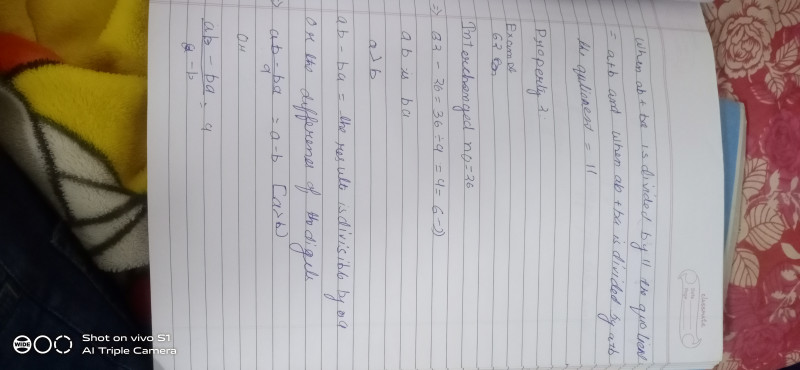 classmate
Date
Page
When ab + ba is divided by 11 the quotient
= a+b and when ab + ba is divided by a+b
the quotient = 11
Property 3.
Example
62
Interchanged no = 26
⇒ 62 - 26 = 36 ÷ 9 = 4 = 6-2)
ab ba
a>b
ab - ba = the result is divisible by 9
or the difference of the digits
ab - ba = a-b [a>b]
9
OR
ab - ba = 9
a - b
WIDE
Shot on vivo S1
AI Triple Camera